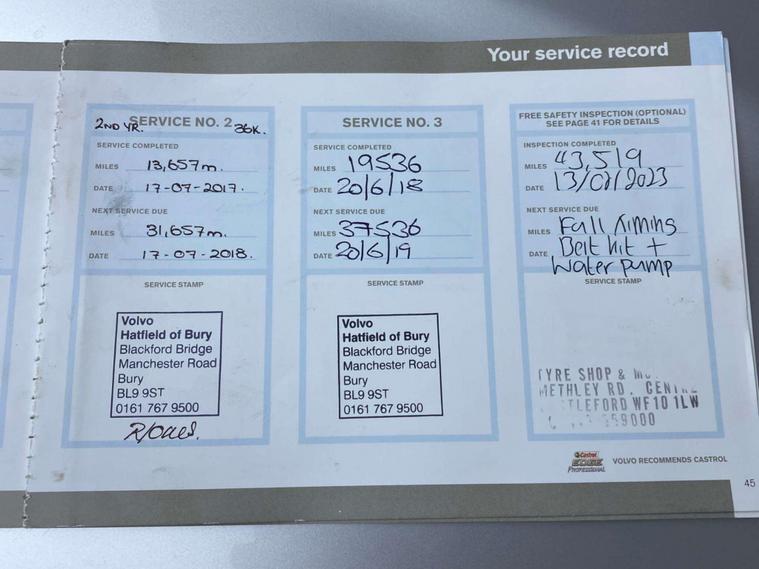 Your service record
2ND YR. SERVICE NO. 2 36K.
SERVICE COMPLETED
MILES 13,657m.
DATE 17-07-2017.
NEXT SERVICE DUE
MILES 31,657m.
DATE 17-07-2018.
SERVICE STAMP
Volvo
Hatfield of Bury
Blackford Bridge
Manchester Road
Bury
BL9 9ST
0161 767 9500
SERVICE NO. 3
SERVICE COMPLETED
MILES 19536
DATE 20/6/18
NEXT SERVICE DUE
MILES 37536
DATE 20/6/19
SERVICE STAMP
Volvo
Hatfield of Bury
Blackford Bridge
Manchester Road
Bury
BL9 9ST
0161 767 9500
FREE SAFETY INSPECTION (OPTIONAL)
SEE PAGE 41 FOR DETAILS
INSPECTION COMPLETED
MILES 43,519
DATE 2023
NEXT SERVICE DUE
MILES Full Timing
DATE Belt kit +
Water pump
SERVICE STAMP
TYRE SHOP &
METHLEY RD.
WF10 1LW
59000
Castrol
EDGE
PROFESSIONAL
VOLVO RECOMMENDS CASTROL
45